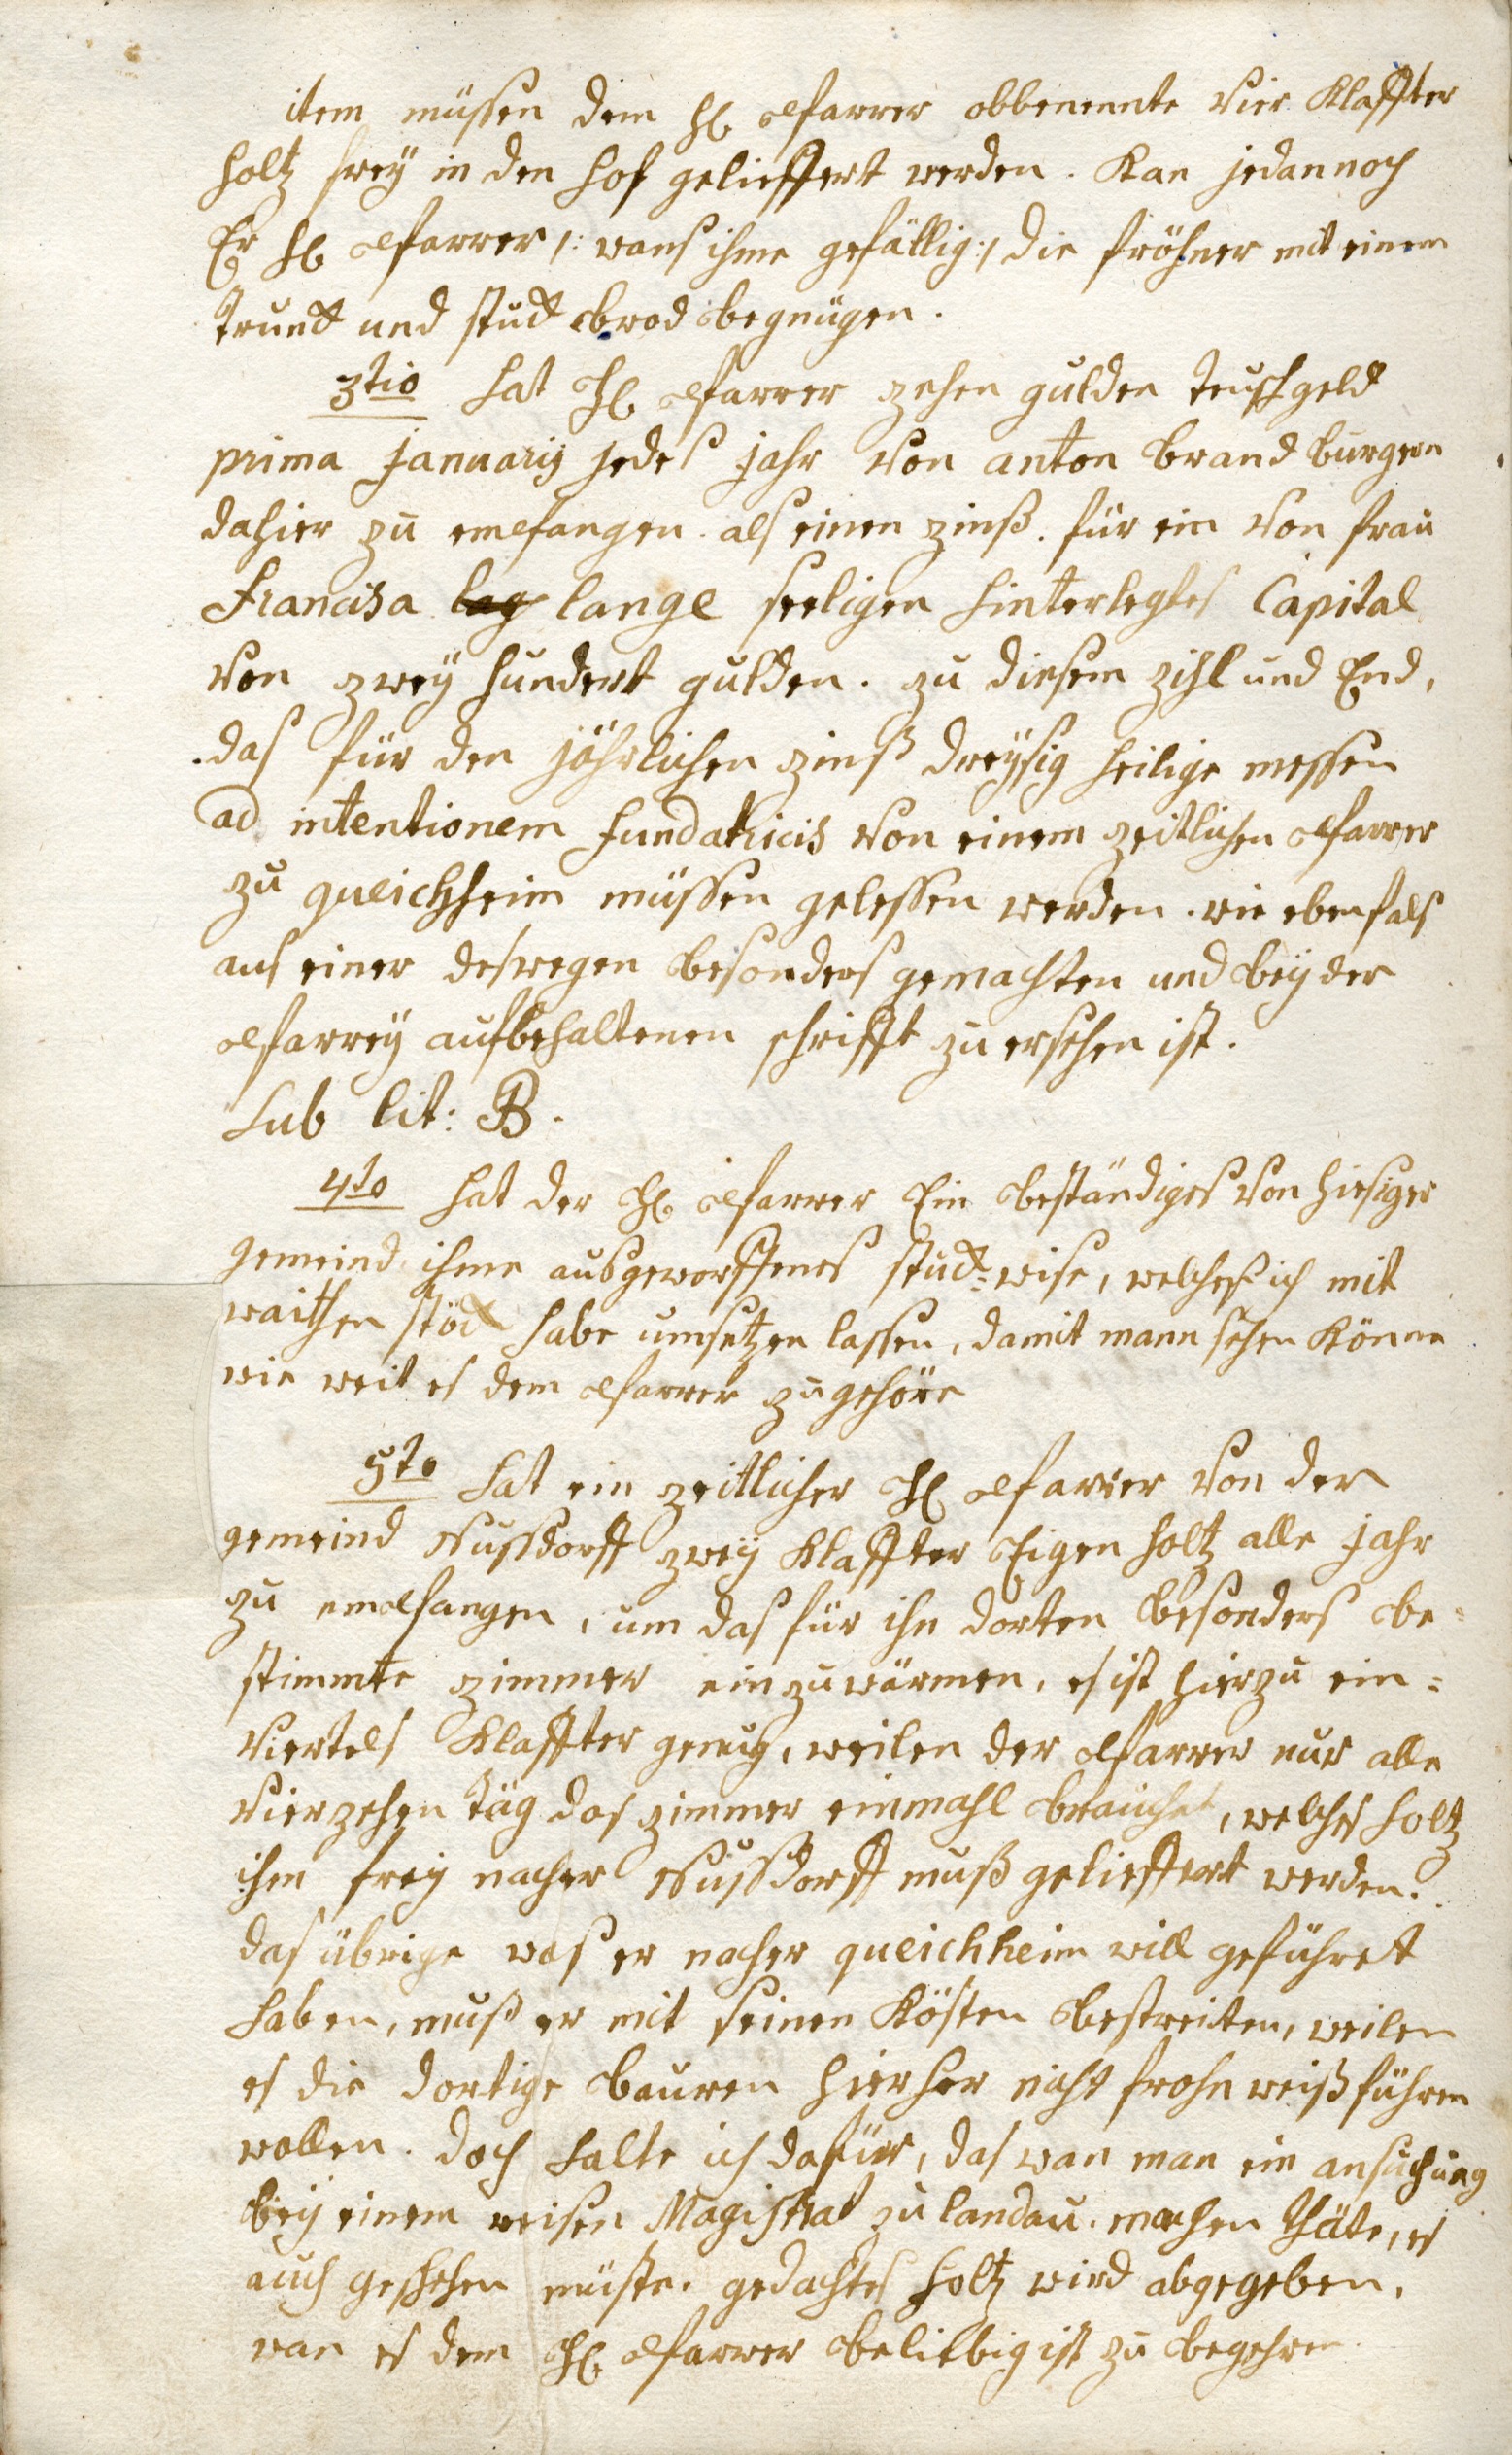 item müssen dem H. Pfarrer obbenente vier Klaffter
holtz frey in den hof gelieffert werden. Kan jedannoch
Er H. Pfarrer /: wans ihme gefällig :/ die fröhner mit einem
Trunck und stuck brod begnügen.
3tio hat H. Pfarrer zehen gulden teutschgeld
prima januarij jedes jahr von anton brand burgern
dahier zu empfangen. als einen zinß. für ein von frau
francisca lag lange seeligen hinterlegtes Capital
von zwey hundert gulden. zu diesem zihl und End,
das für den jährlichen zinß dreysig heilige messen
ad intentionem fundatricis von einem zeitlichen Pfarrer
zu queichheim müssen gelessen werden. wie ebenfals
aus einer deswegen besonders gemachten und bey der
Pfarrey aufbehaltenen schrifft zu ersehen ist.
Sub lit: B.
4to hat der H. Pfarrer Ein beständiges von hiesiger
gemeind ihme ausgeworffenes stuck-wise, welches ich mit
waithen stöck habe umsetzen lassen, damit mann sehen Könne
wie weit es dem Pfarrer zugehöre
5to hat ein zeitlicher H. Pfarrer von der
gemeind Nussdorff zwey Klaffter Eigen holtz alle jahr
zu empfangen, um das für ihn dorten besonders be=
stimmte zimmer einzuwärmen, es ist hierzu ein=
viertels Klaffter genug, weilen der Pfarrer nur alle
vierzehen täg das zimmer einmahl brauchet, welches holtz
ihm frey nacher Nussdorff muß gelieffert werden.
das übrige was er nacher queichheim will geführet
haben, muß er mit seinen Kösten bestreiten, weilen
es die dortige bauren hierher nicht frohnweiß führen
wollen. doch halte ich dafür, das wan man ein ansuchung
bey einem weisen Magistrat zu landau. machen thäte, es
auch geschehen müste. gedachtes holtz wird abgegeben,
wan es dem H. Pfarrer beliebig ist zu begehren